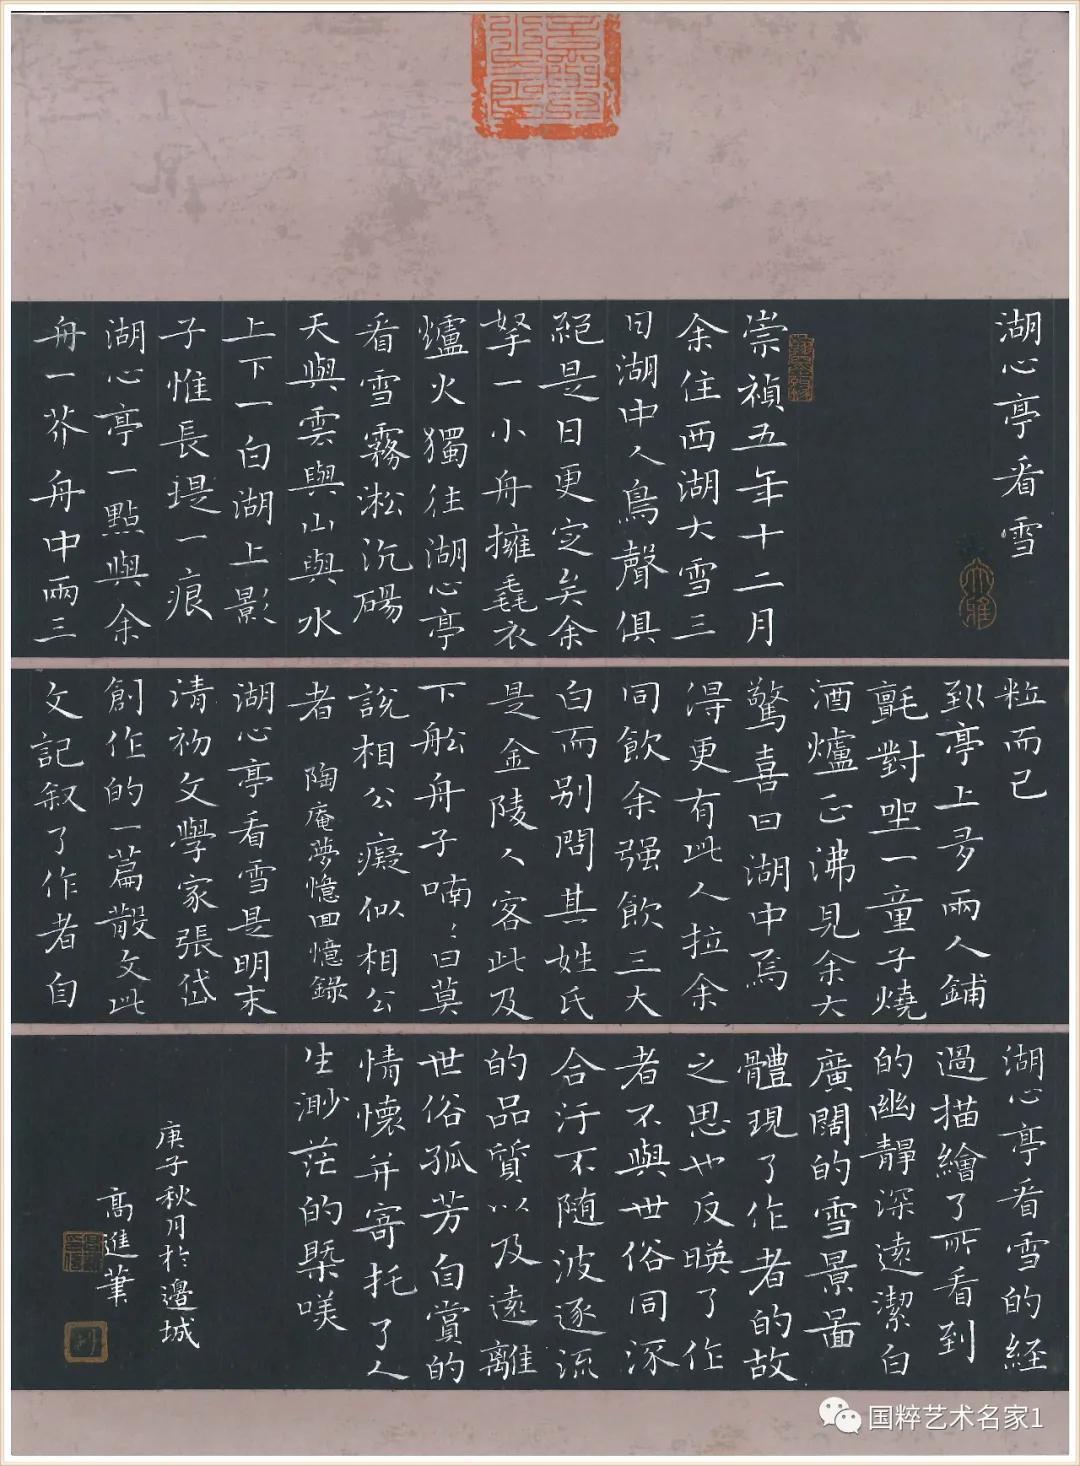 湖心亭看雪
崇禎五年十二月
余住西湖大雪三
日湖中人鳥聲俱
絕是日更定矣余
拏一小舟擁毳衣
爐火獨往湖心亭
看雪霧淞沆碭
天與雲與山與水
上下一白湖上影
子惟長堤一痕
湖心亭一點與余
舟一芥舟中兩三
粒而已
到亭上有兩人鋪
氈對坐一童子燒
酒爐正沸見余大
驚喜曰湖中焉
得更有此人拉余
同飲余强飲三大
白而別問其姓氏
是金陵人客此及
下船舟子喃々曰莫
說相公癡似相公
者 陶庵夢憶回憶錄
湖心亭看雪是明末
清初文學家張岱
創作的一篇散文此
文記叙了作者自
湖心亭看雪的経
過描繪了所看到
的幽靜深遠潔白
廣闊的雪景圖
體現了作者的故
之思也反暎了作
者不與世俗同流
合汙不随波逐流
的品質以及遠離
世俗孤芳自賞的
情懷并寄托了人
生渺茫的槩嘆
庚子秋月於邊城
高進筆
大雅
国粹艺术名家1